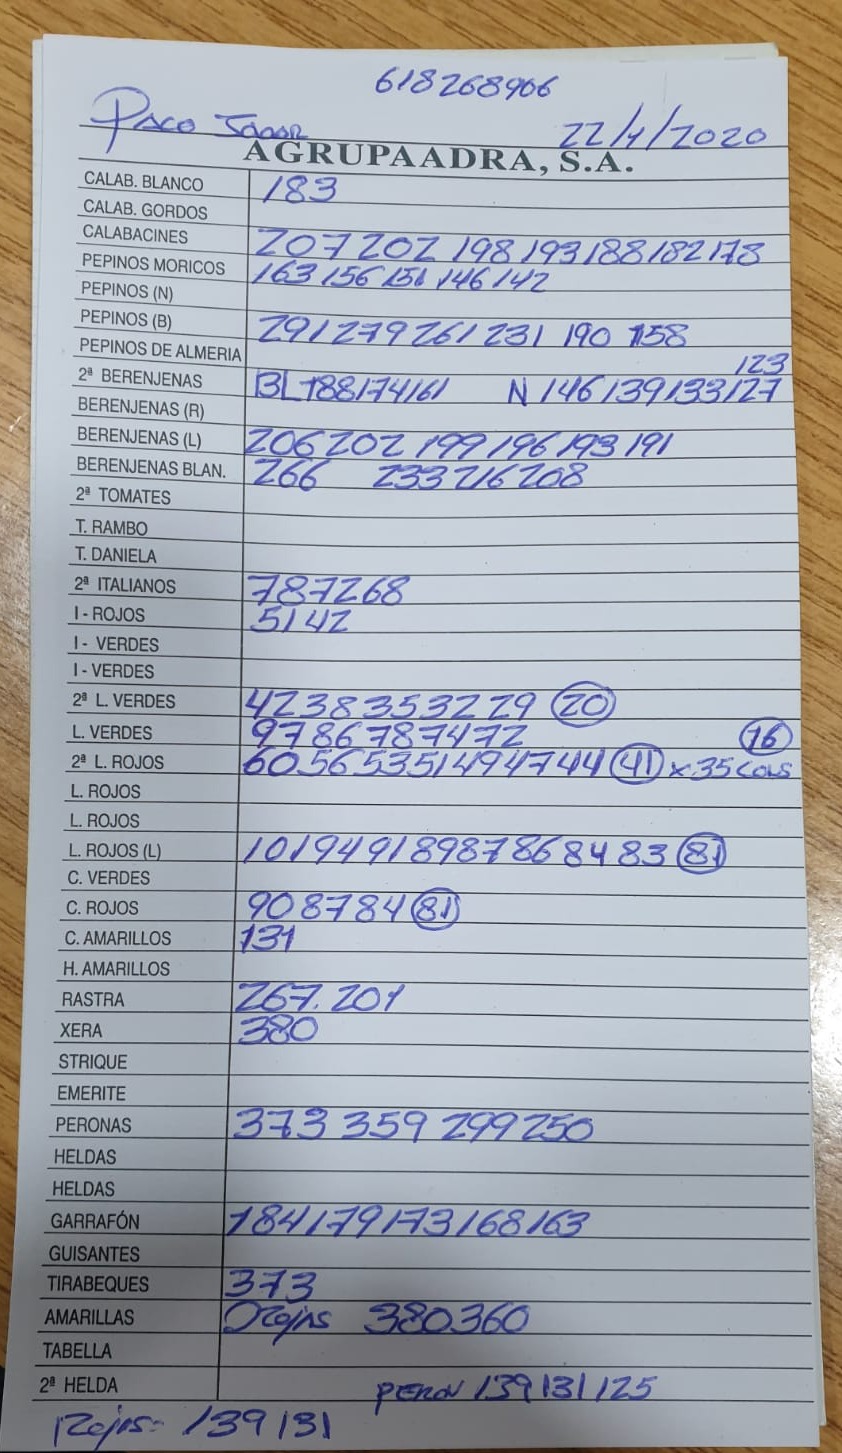 618268906
Paco 22/4/2020
AGRUPAADRA, S.A.
CALAB. BLANCO 183
CALAB. GORDOS
CALABACINES 207 202 198 193 188 182 178
PEPINOS MORICOS 163 156 151 146 142
PEPINOS (N)
PEPINOS (B) 291 279 261 231 190 158
PEPINOS DE ALMERIA 123
2ª BERENJENAS BL 188 174 161 N 146 139 133 127
BERENJENAS (R)
BERENJENAS (L) 206 202 199 196 193 191
BERENJENAS BLAN. 266 233 216 208
2ª TOMATES
T. RAMBO
T. DANIELA
2ª ITALIANOS 78 72 68
I - ROJOS 51 42
I - VERDES
I - VERDES
2ª L. VERDES 42 38 35 32 29 20
L. VERDES 97 86 78 74 72 16
2ª L. ROJOS 60 56 53 51 49 47 44 41 x 35 cols
L. ROJOS
L. ROJOS
L. ROJOS (L) 101 94 91 89 87 86 84 83 81
C. VERDES
C. ROJOS 90 87 84 81
C. AMARILLOS 131
H. AMARILLOS
RASTRA 267. 201
XERA 380
STRIQUE
EMERITE
PERONAS 373 359 299 250
HELDAS
HELDAS
GARRAFÓN 184 179 173 168 163
GUISANTES
TIRABEQUES 373
AMARILLAS 380 360
TABELLA
2ª HELDA PERON 139 131 125
Rojas = 139 131